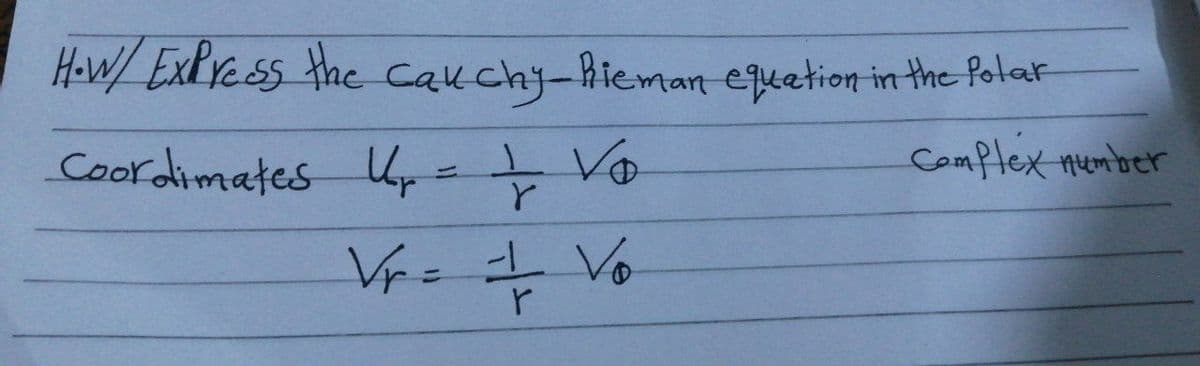 H.W/ ExPress the Cauchy-Rieman equation in the Polar
Coordimates Ur = 1/r VΦ Complex number
Vr = -1/r VΦ